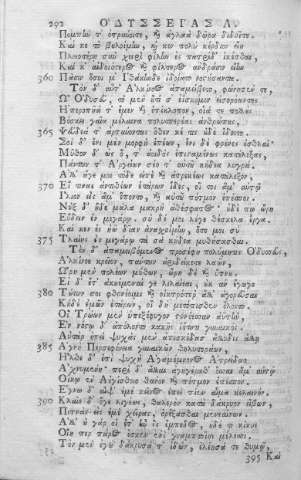 292 ΟΔΥΣΣΕΙΑΣ Λ.
Πομπήν τ' ὀτρύνοιτε, καὶ ἀγλαὰ δῶρα διδοῖτε,
Καί κε τὸ βουλοίμην, καί κεν πολὺ κέρδιον εἴη
Πλειοτέρῃ σὺν χειρὶ φίλην ἐς πατρίδ' ἱκέσθαι,
Καί κ' αἰδοιότερος καὶ φίλτερος ἀνδράσιν εἴην
360 Πᾶσιν ὅσοι μ' Ἰθάκηνδε ἰδοίατο νοστήσαντα.
Τὸν δ' αὖτ' Ἀλκίνοος ἀπαμείβετο, φώνησέν τε,
Ὦ Ὀδυσεῦ, τὸ μὲν οὔτι σ' ἐΐσκομεν εἰσορόωντες
Ἠπεροπῆά τ' ἔμεν καὶ ἐπίκλοπον, οἷά τε πολλοὺς
Βόσκει γαῖα μέλαινα πολυσπερέας ἀνθρώπους,
365 Ψεύδεά τ' ἀρτύνοντας ὅθεν κέ τις οὐδὲ ἴδοιτο.
Σοὶ δ' ἔπι μὲν μορφὴ ἐπέων, ἔνι δὲ φρένες ἐσθλαί·
Μῦθον δ' ὡς ὅτ' ἀοιδὸς ἐπισταμένως κατέλεξας,
Πάντων τ' Ἀργείων σέο τ' αὐτοῦ κήδεα λυγρά.
Ἀλλ' ἄγε μοι τόδε εἰπὲ καὶ ἀτρεκέως κατάλεξον,
370 Εἴ τινας ἀντιθέων ἑτάρων ἴδες, οἵ τοι ἅμ' αὐτῷ
Ἴλιον εἰς ἅμ' ἕποντο, καὶ αὐτοῦ πότμον ἐπέσπον.
Νὺξ δ' ἥδε μάλα μακρὴ ἀθέσφατος· οὐδέ πω ὥρη
Εὕδειν ἐν μεγάρῳ. σὺ δέ μοι λέγε θέσκελα ἔργα.
Καί κεν ἐς ἠῶ δῖαν ἀνασχοίμην, ὅτε μοι σὺ
375 Τλαίης ἐν μεγάρῳ τὰ σὰ κήδεα μυθήσασθαι.
Τὸν δ' ἀπαμειβόμενος προσέφη πολύμητις Ὀδυσσεύς,
Ἀλκίνοε κρεῖον, πάντων ἀριδείκετε λαῶν,
Ὥρη μὲν πολέων μύθων, ὥρη δὲ καὶ ὕπνου.
Εἰ δ' ἔτ' ἀκουέμεναί γε λιλαίεαι, οὐκ ἂν ἔγωγε
380 Τούτων σοι φθονέοιμι καὶ οἰκτρότερ' ἄλλ' ἀγορεῦσαι
Κήδε' ἐμῶν ἑτάρων, οἳ δὴ μετόπισθεν ὄλοντο.
Οἳ Τρώων μὲν ὑπεξέφυγον στονόεσσαν ἀϋτήν,
Ἐν νόστῳ δ' ἀπόλοντο κακῆς ἰότητι γυναικός.
Αὐτὰρ ἐπεὶ ψυχὰς μὲν ἀπεσκέδασ' ἄλλυδις ἄλλην
385 Ἁγνὴ Περσεφόνεια γυναικῶν θηλυτεράων,
Ἦλθε δ' ἐπὶ ψυχὴ Ἀγαμέμνονος Ἀτρείδαο
Ἀχνυμένη· περὶ δ' ἄλλαι ἀγηγέραθ' ὅσσαι ἅμ' αὐτῷ
Οἴκῳ ἐν Αἰγίσθοιο θάνον καὶ πότμον ἐπέσπον.
Ἔγνω δ' αἶψ' ἐμὲ κεῖνος ἐπεὶ πίεν αἷμα κελαινόν.
390 Κλαῖε δ' ὅγε λιγέως, θαλερὸν κατὰ δάκρυον εἴβων,
Πιτνὰς εἰς ἐμὲ χεῖρας, ὀρέξασθαι μενεαίνων.
Ἀλλ' οὐ γάρ οἱ ἔτ' ἦν ἲς ἔμπεδος, οὐδέ τι κίκυς
Οἵη περ πάρος ἔσκεν ἐνὶ γναμπτοῖσι μέλεσσι.
Τὸν μὲν ἐγὼ δάκρυσα τ' ἰδών, ἐλέησά τε θυμῷ,
395 Καί